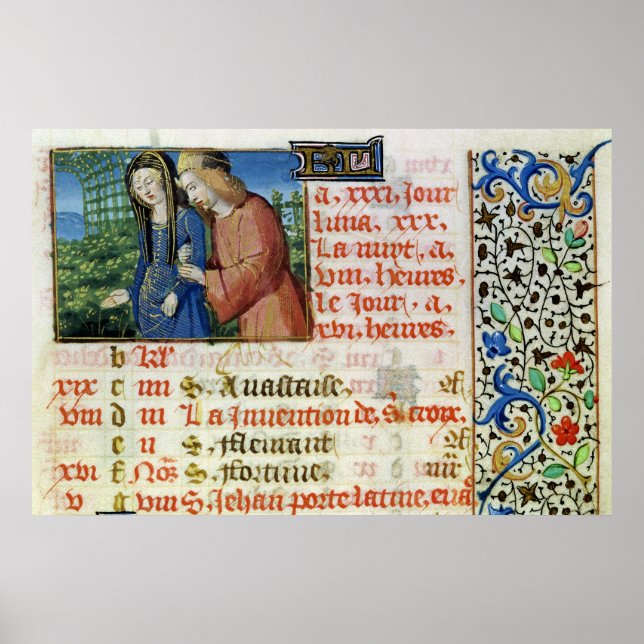 KL
a, xxxi, Jour
luna, xxx,
La nuyt, a,
viii, heures,
le Jour, a,
xvi, heures,
b kl
xix c iiii S, Anastaise,
viii d iii La Invention de, S, croix,
e ii S,
xvi f Noñ S, Fortune,
v g viii S, Jehan porte latine,